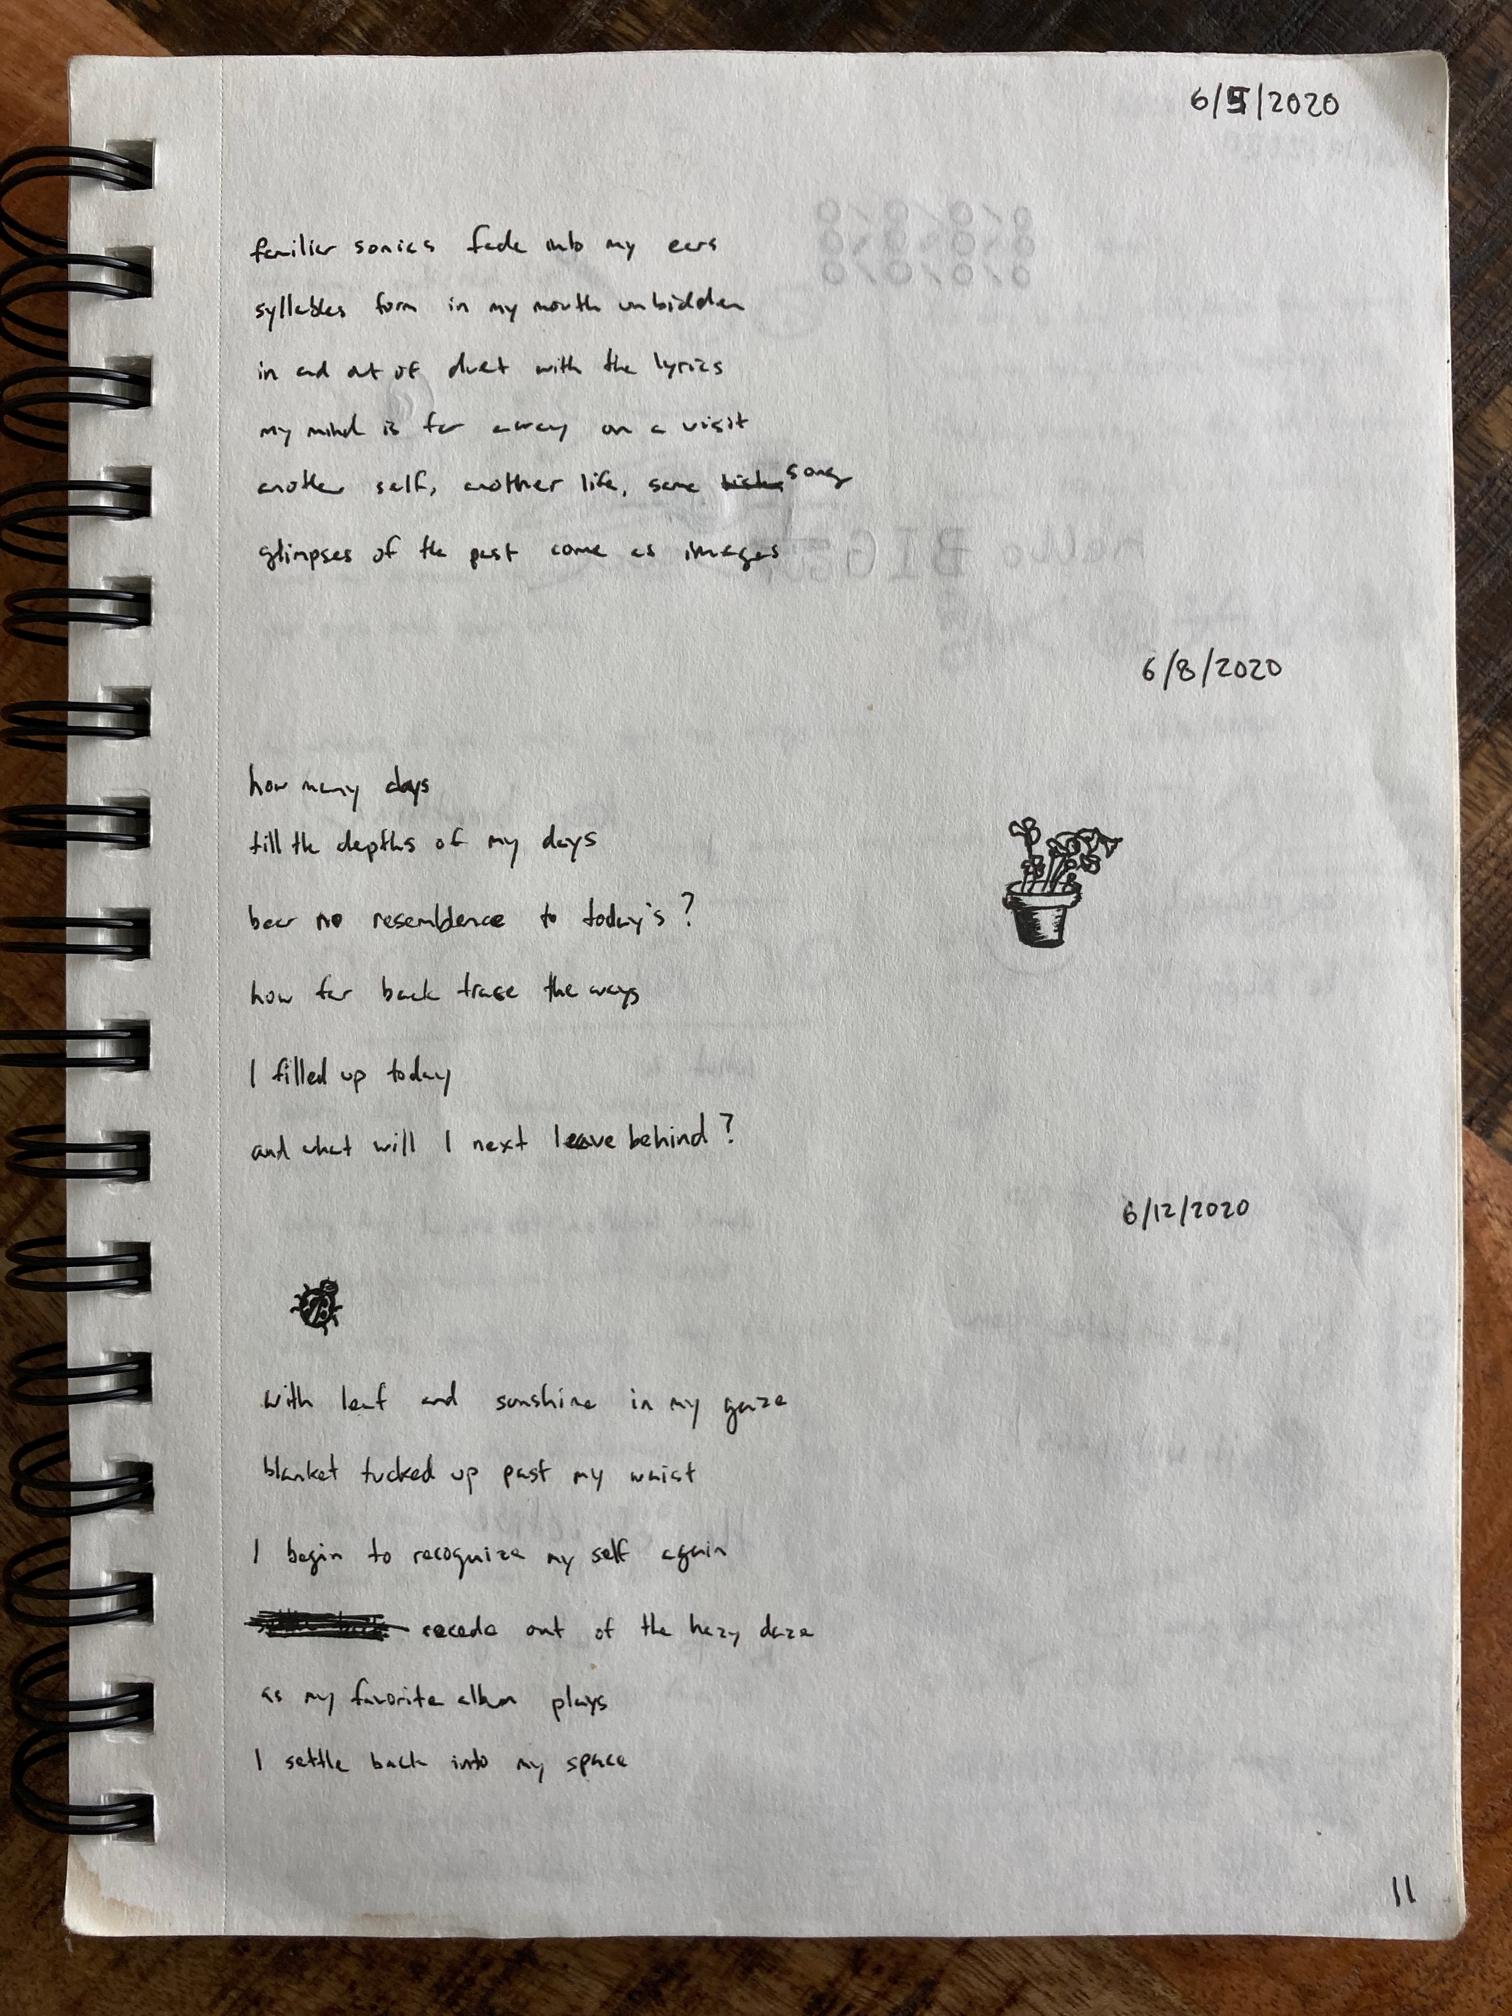 6/5/2020
familiar sonics fade into my ears
syllables form in my mouth unbidden
in and out of duet with the lyrics
my mind is far away on a visit
another self, another life, same song
glimpses of the past come as images
6/8/2020
how many days
till the depths of my days
bear no resemblence to today's?
how far back trace the ways
I filled up today
and what will I next leave behind?
6/12/2020
with leaf and sunshine in my gaze
blanket tucked up past my waist
I begin to recognize my self again
recede out of the hazy daze
as my favorite album plays
I settle back into my space
11